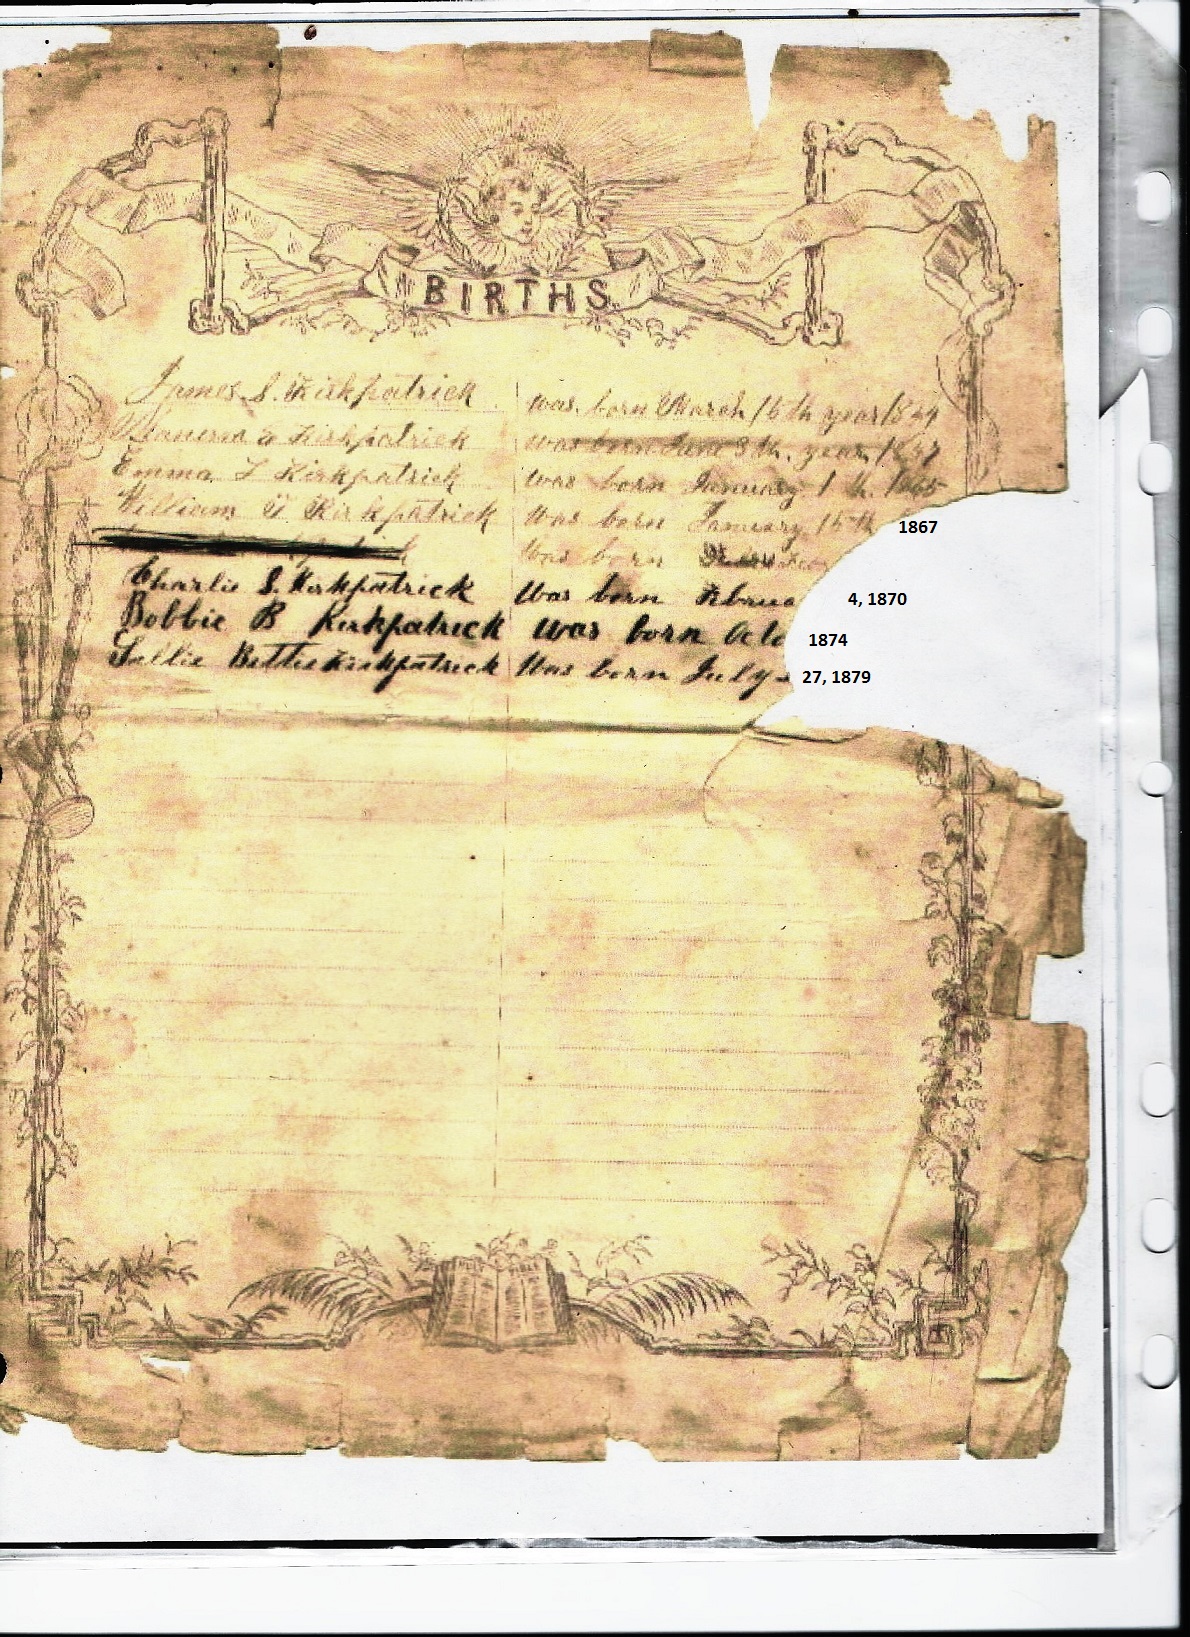 BIRTHS
James S. Kirkpatrick was born March 15th year 1844
Kirkpatrick was born June 3th. year 1847
Emma L Kirkpatrick was born January 1th. 1865
William T Kirkpatrick was born January 15th 1867
was born
Charlie S. Kirkpatrick was born Februa 4, 1870
Bobbie B Kirkpatrick was born Octo 1874
Sallie Bettie Kirkpatrick Was born July 27, 1879
HOLY BIBLE